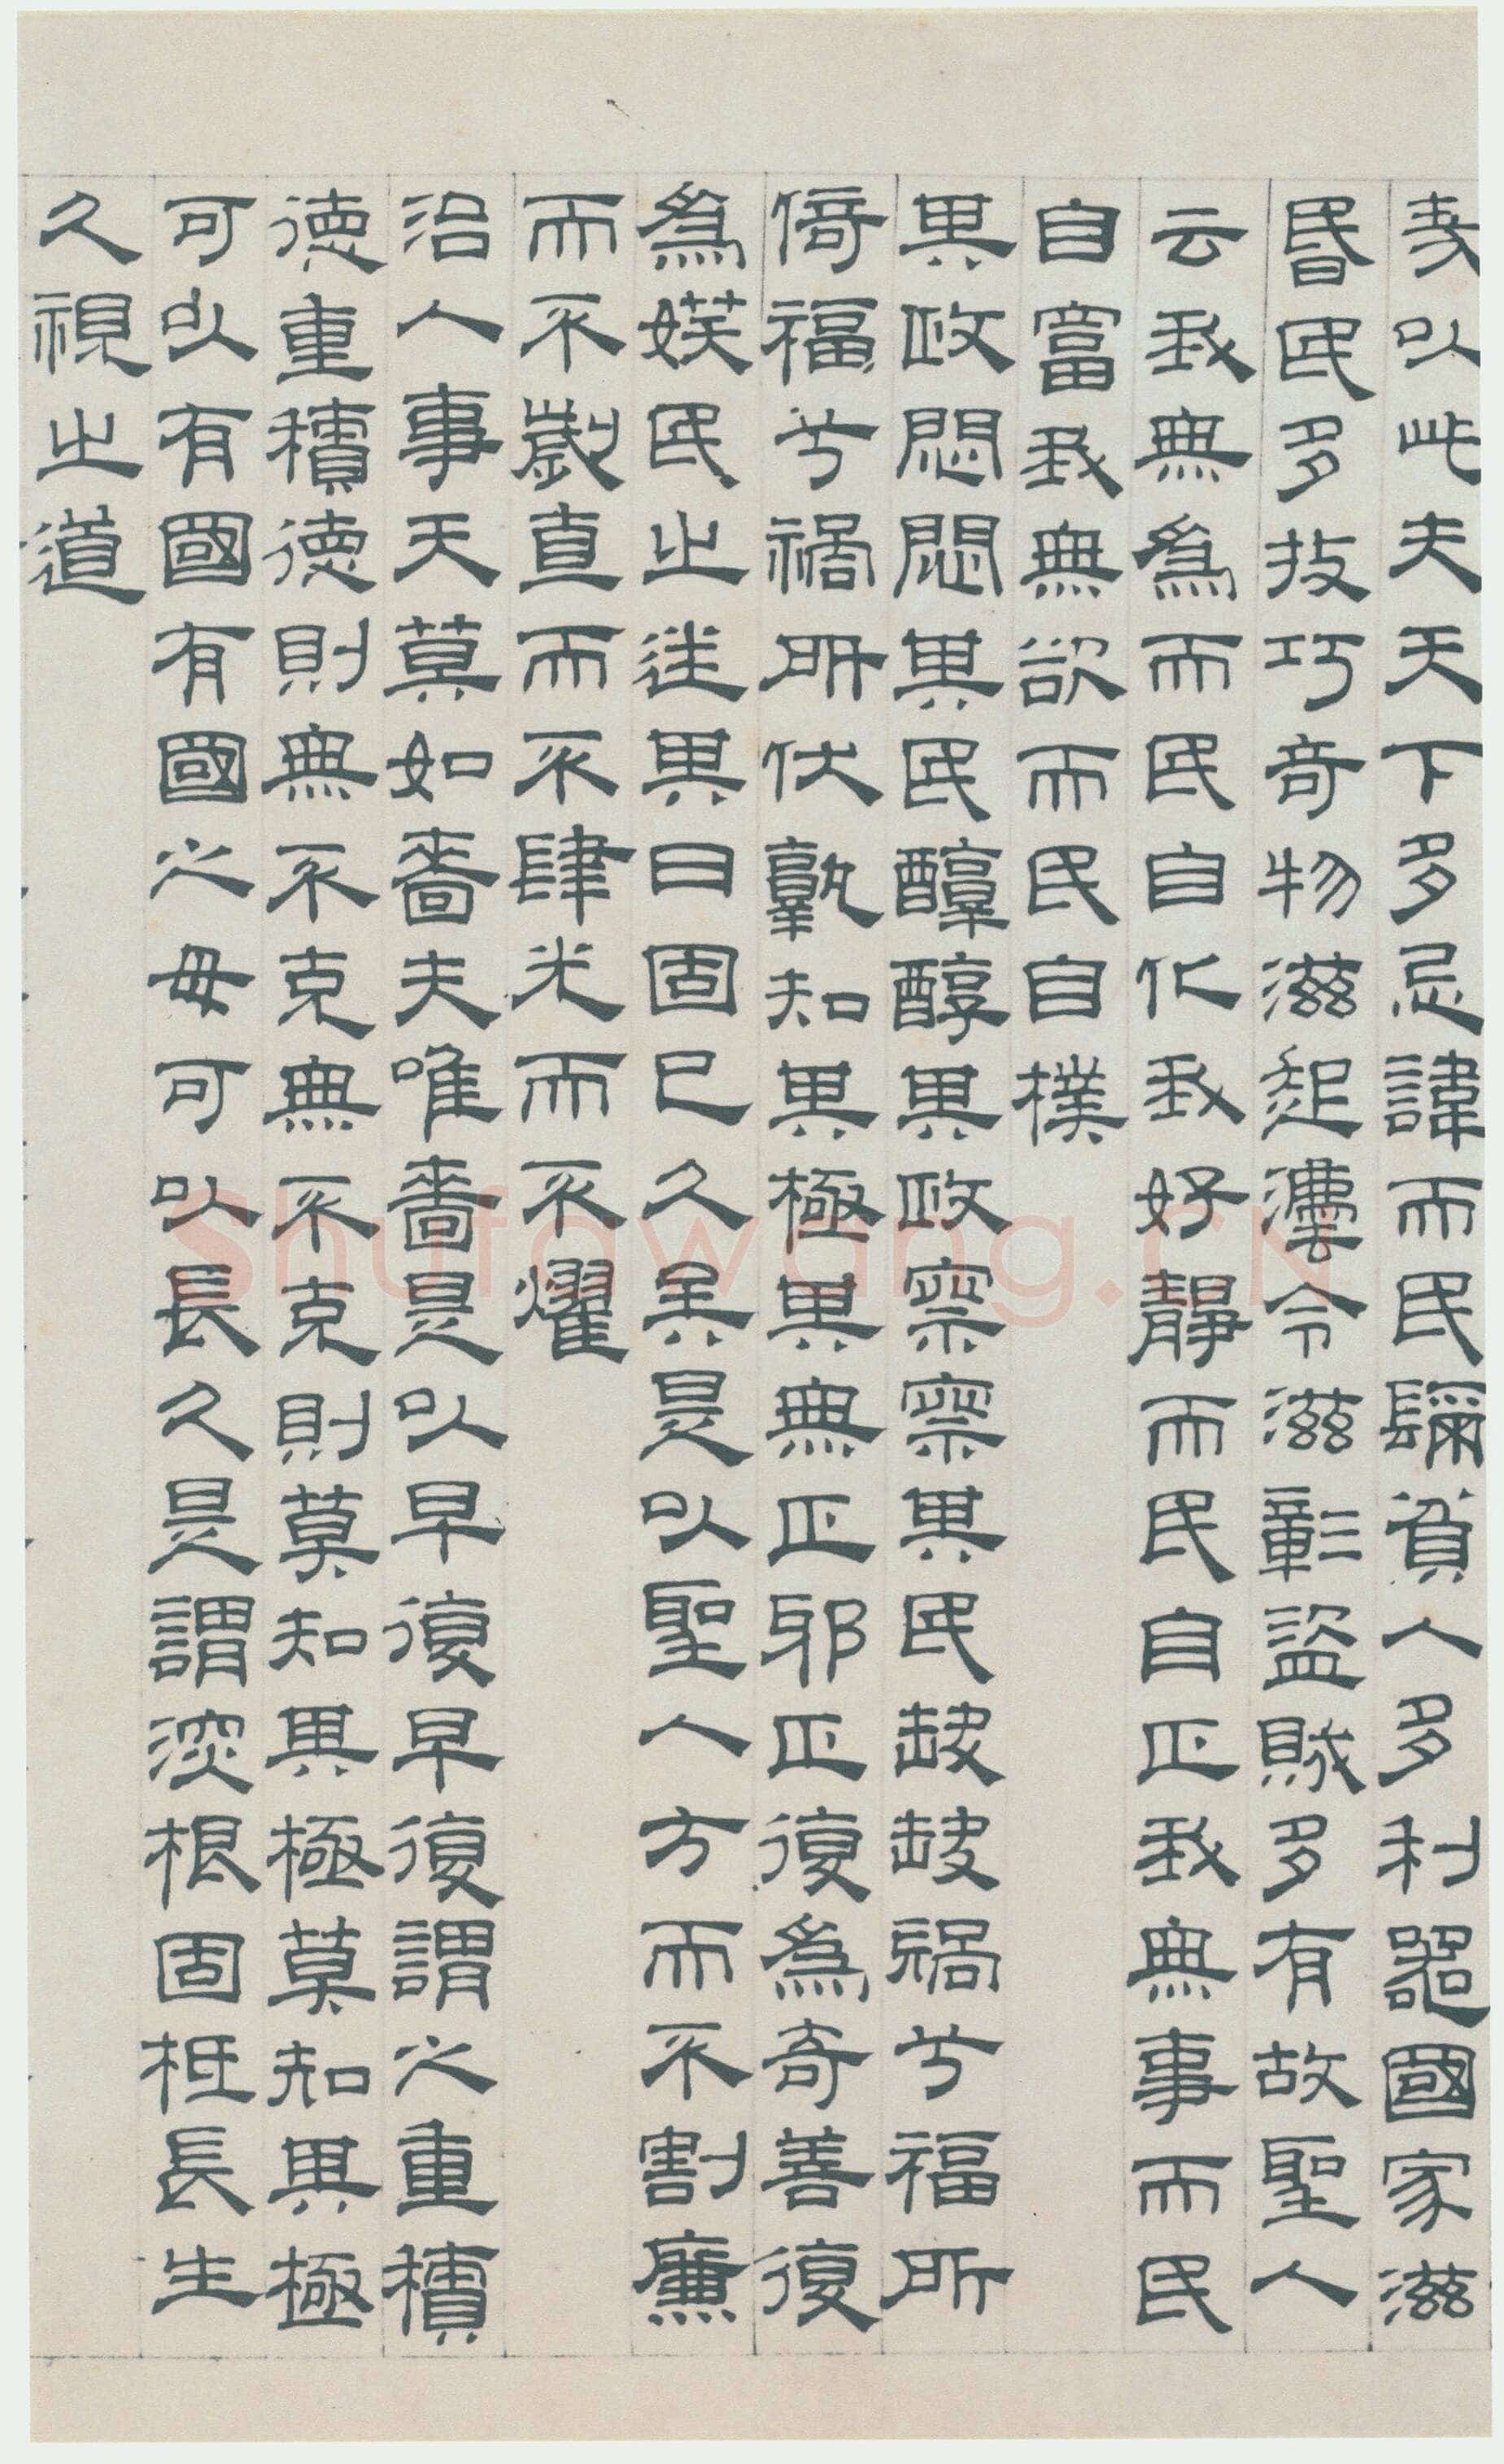 哉以此夫天下多忌諱而民彌貧人多利器國家滋
昏民多技巧奇物滋起灋令滋彰盜賊多有故聖人
云我無爲而民自化我好靜而民自正我無事而民
自富我無欲而民自樸
其政悶悶其民醇醇其政察察其民缺缺禍兮福所
倚福兮禍所伏孰知其極其無正邪正復爲奇善復
爲訞民之迷其日固已久矣是以聖人方而不割廉
而不劌直而不肆光而不耀
治人事天莫如嗇夫唯嗇是以早復早復謂之重積
德重積德則無不克無不克則莫知其極莫知其極
可以有國有國之母可以長久是謂深根固柢長生
久視之道
Shufawang.CN